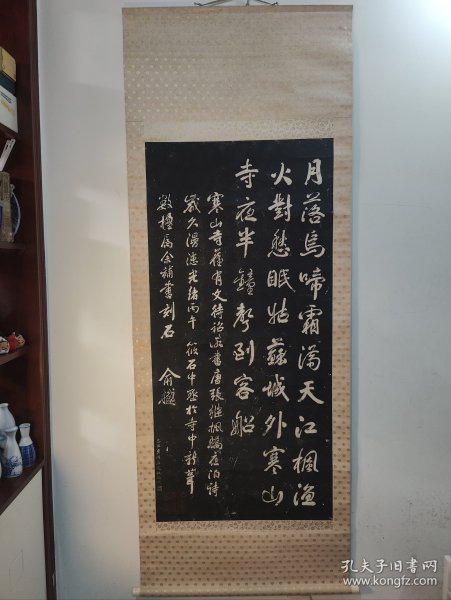 月落烏啼霜滿天江楓漁
火對愁眠姑蘇城外寒山
寺夜半鐘聲到客船
寒山寺舊有文待詔所書唐張繼楓橋夜泊詩
歲久漫漶光緒丙午筱石中丞於寺中新葺
數楹屬余補書刻石 俞樾
孔夫子旧书网
www.kongfz.com